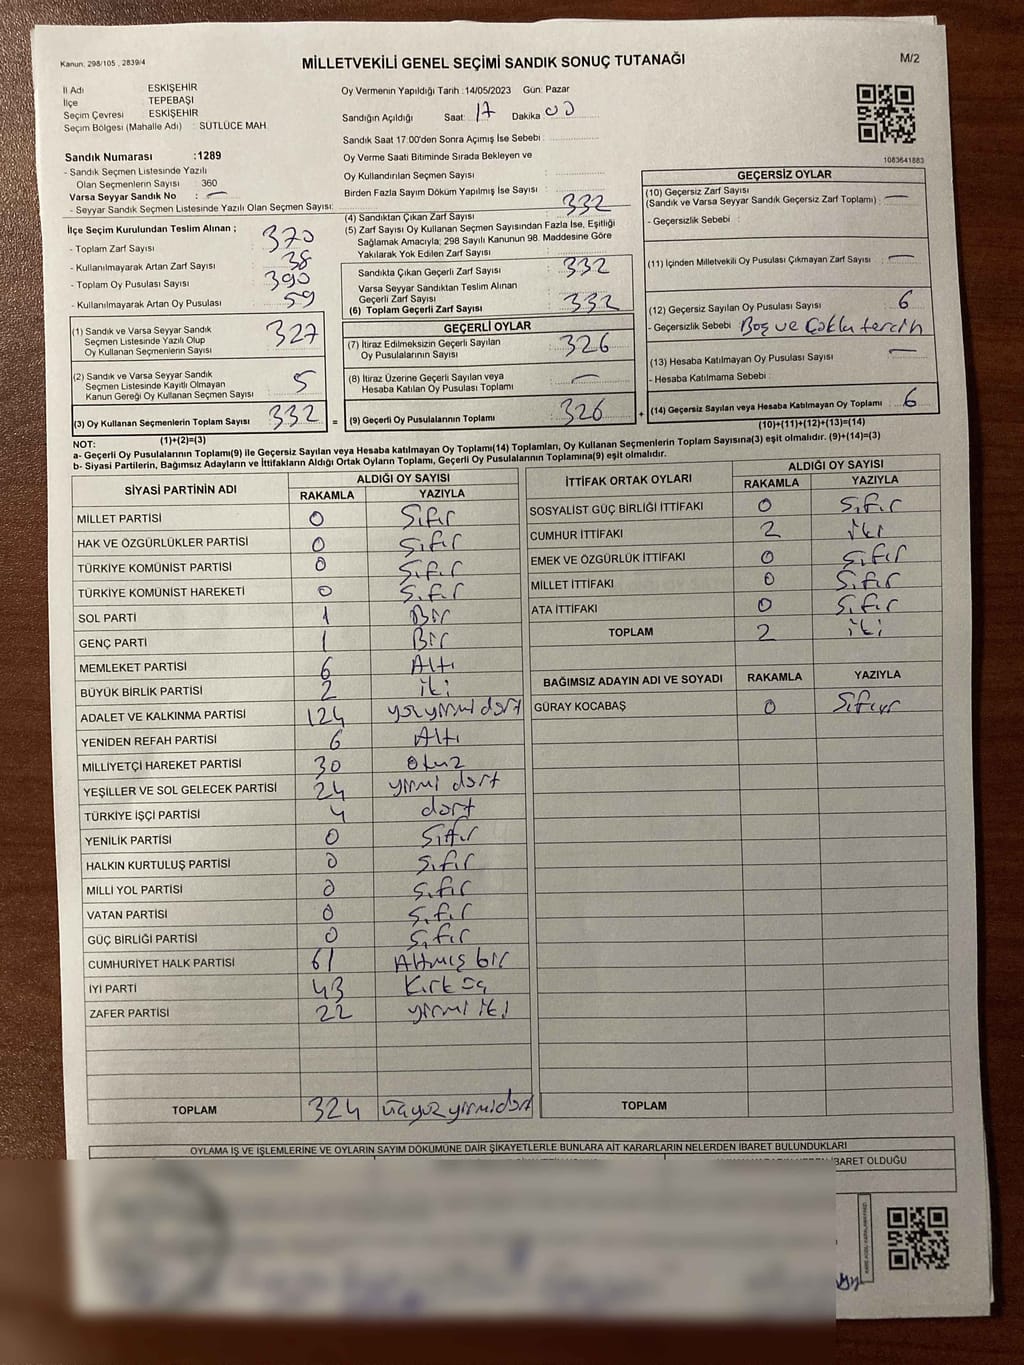 Kanun: 298/105 , 2839/4
MİLLETVEKİLİ GENEL SEÇİMİ SANDIK SONUÇ TUTANAĞI
M/2
İl Adı ESKİŞEHİR
İlçe TEPEBAŞI
Seçim Çevresi ESKİŞEHİR
Seçim Bölgesi (Mahalle Adı) : SÜTLÜCE MAH.
Sandık Numarası :1289
- Sandık Seçmen Listesinde Yazılı
Olan Seçmenlerin Sayısı : 360
Varsa Seyyar Sandık No : —
- Seyyar Sandık Seçmen Listesinde Yazılı Olan Seçmen Sayısı:
Oy Vermenin Yapıldığı Tarih :14/05/2023 Gün: Pazar
Sandığın Açıldığı Saat: 17 Dakika 00
Sandık Saat 17:00'den Sonra Açımış İse Sebebi :
Oy Verme Saati Bitiminde Sırada Bekleyen ve
Oy Kullandırılan Seçmen Sayısı :
Birden Fazla Sayım Döküm Yapılmış İse Sayısı :
1083641883
İlçe Seçim Kurulundan Teslim Alınan ;
- Toplam Zarf Sayısı : 370
- Kullanılmayarak Artan Zarf Sayısı : 38
- Toplam Oy Pusulası Sayısı : 390
- Kullanılmayarak Artan Oy Pusulası : 59
(1) Sandık ve Varsa Seyyar Sandık
Seçmen Listesinde Yazılı Olup
Oy Kullanan Seçmenlerin Sayısı : 327
(2) Sandık ve Varsa Seyyar Sandık
Seçmen Listesinde Kayıtlı Olmayan
Kanun Gereği Oy Kullanan Seçmen Sayısı : 5
(3) Oy Kullanan Seçmenlerin Toplam Sayısı : 332
(1)+(2)=(3)
(4) Sandıktan Çıkan Zarf Sayısı : 332
(5) Zarf Sayısı Oy Kullanan Seçmen Sayısından Fazla İse, Eşitliği
Sağlamak Amacıyla; 298 Sayılı Kanunun 98. Maddesine Göre
Yakılarak Yok Edilen Zarf Sayısı :
Sandıkta Çıkan Geçerli Zarf Sayısı : 332
Varsa Seyyar Sandıktan Teslim Alınan
Geçerli Zarf Sayısı :
(6) Toplam Geçerli Zarf Sayısı : 332
GEÇERLİ OYLAR
(7) İtiraz Edilmeksizin Geçerli Sayılan
Oy Pusulalarının Sayısı : 326
(8) İtiraz Üzerine Geçerli Sayılan veya
Hesaba Katılan Oy Pusulası Toplamı : —
= (9) Geçerli Oy Pusulalarının Toplamı : 326
GEÇERSİZ OYLAR
(10) Geçersiz Zarf Sayısı
(Sandık ve Varsa Seyyar Sandık Geçersiz Zarf Toplamı) : —
- Geçersizlik Sebebi :
(11) İçinden Milletvekili Oy Pusulası Çıkmayan Zarf Sayısı : —
(12) Geçersiz Sayılan Oy Pusulası Sayısı : 6
- Geçersizlik Sebebi : Boş ve Çoklu tercih
(13) Hesaba Katılmayan Oy Pusulası Sayısı : —
- Hesaba Katılmama Sebebi :
+ (14) Geçersiz Sayılan veya Hesaba Katılmayan Oy Toplamı : 6
(10)+(11)+(12)+(13)=(14)
NOT:
a- Geçerli Oy Pusulalarının Toplamı(9) ile Geçersiz Sayılan veya Hesaba katılmayan Oy Toplamı(14) Toplamları, Oy Kullanan Seçmenlerin Toplam Sayısına(3) eşit olmalıdır. (9)+(14)=(3)
b- Siyasi Partilerin, Bağımsız Adayların ve İttifakların Aldığı Ortak Oyların Toplamı, Geçerli Oy Pusulalarının Toplamına(9) eşit olmalıdır.
SİYASİ PARTİNİN ADI ALDIĞI OY SAYISI
RAKAMLA YAZIYLA
MİLLET PARTİSİ 0 Sıfır
HAK VE ÖZGÜRLÜKLER PARTİSİ 0 Sıfır
TÜRKİYE KOMÜNİST PARTİSİ 0 Sıfır
TÜRKİYE KOMÜNİST HAREKETİ 0 Sıfır
SOL PARTİ 1 Bir
GENÇ PARTİ 1 Bir
MEMLEKET PARTİSİ 6 Altı
BÜYÜK BİRLİK PARTİSİ 2 iki
ADALET VE KALKINMA PARTİSİ 124 yüzyirmi dört
YENİDEN REFAH PARTİSİ 6 Altı
MİLLİYETÇİ HAREKET PARTİSİ 30 Otuz
YEŞİLLER VE SOL GELECEK PARTİSİ 24 yirmi dört
TÜRKİYE İŞÇİ PARTİSİ 4 dört
YENİLİK PARTİSİ 0 Sıfır
HALKIN KURTULUŞ PARTİSİ 0 Sıfır
MİLLİ YOL PARTİSİ 0 Sıfır
VATAN PARTİSİ 0 Sıfır
GÜÇ BİRLİĞİ PARTİSİ 0 Sıfır
CUMHURİYET HALK PARTİSİ 61 Altmış bir
İYİ PARTİ 43 Kırk üç
ZAFER PARTİSİ 22 yirmi iki
TOPLAM 324 üçyüz yirmidört
İTTİFAK ORTAK OYLARI ALDIĞI OY SAYISI
RAKAMLA YAZIYLA
SOSYALİST GÜÇ BİRLİĞİ İTTİFAKI 0 Sıfır
CUMHUR İTTİFAKI 2 iki
EMEK VE ÖZGÜRLÜK İTTİFAKI 0 Sıfır
MİLLET İTTİFAKI 0 Sıfır
ATA İTTİFAKI 0 Sıfır
TOPLAM 2 iki
BAĞIMSIZ ADAYIN ADI VE SOYADI RAKAMLA YAZIYLA
GÜRAY KOCABAŞ 0 Sıfır
TOPLAM
OYLAMA İŞ VE İŞLEMLERİNE VE OYLARIN SAYIM DÖKÜMÜNE DAİR ŞİKAYETLERLE BUNLARA AİT KARARLARIN NELERDEN İBARET BULUNDUKLARI
İBARET OLDUĞU